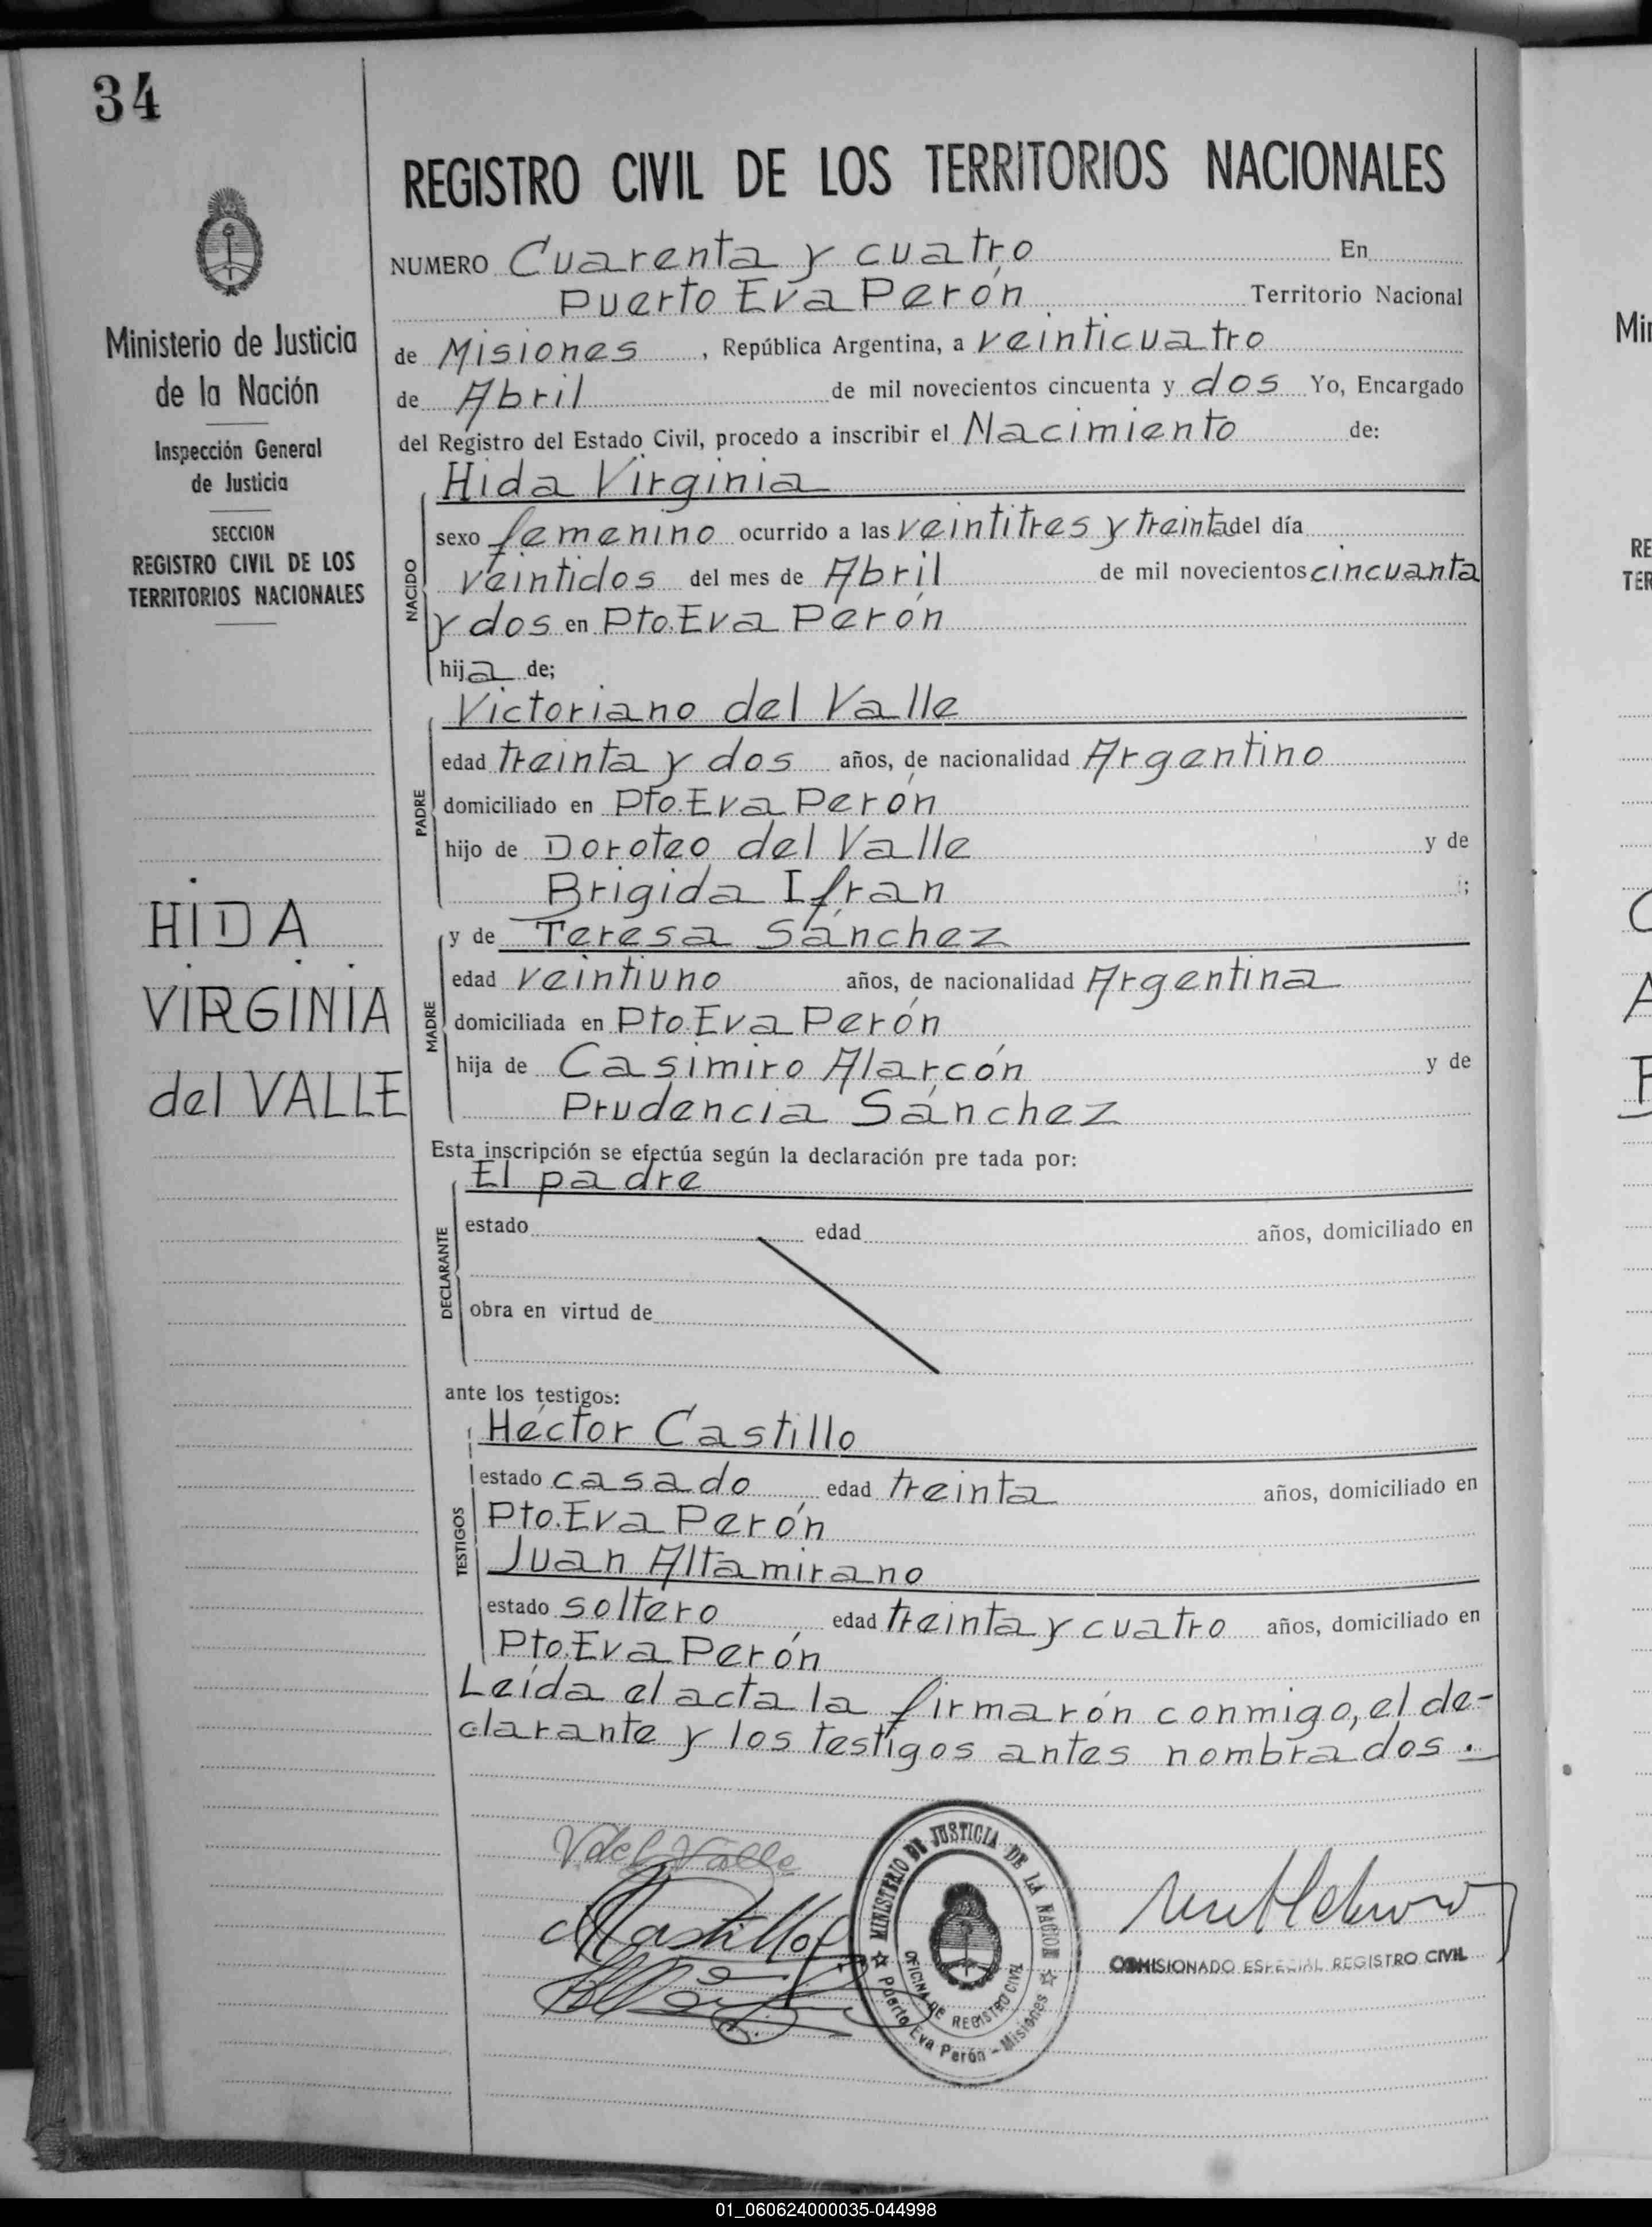 34
REGISTRO CIVIL DE LOS TERRITORIOS NACIONALES
Ministerio de Justicia
de la Nación
Inspección General
de Justicia
SECCION
REGISTRO CIVIL DE LOS
TERRITORIOS NACIONALES
HIDA
VIRGINIA
del VALLE
NUMERO Cuarenta y cuatro En
Puerto Eva Perón Territorio Nacional
de Misiones, República Argentina, a veinticuatro
de Abril de mil novecientos cincuenta y dos Yo, Encargado
del Registro del Estado Civil, procedo a inscribir el Nacimiento de:
Hida Virginia
NACIDO
sexo femenino ocurrido a las veintitres y treinta del día
veintidos del mes de Abril de mil novecientos cincuenta
y dos en Pto. Eva Perón
hija de;
Victoriano del Valle
PADRE
edad treinta y dos años, de nacionalidad Argentino
domiciliado en Pto. Eva Perón
hijo de Doroteo del Valle y de
Brigida Ifran ;
y de Teresa Sánchez
MADRE
edad veintiuno años, de nacionalidad Argentina
domiciliada en Pto. Eva Perón
hija de Casimiro Alarcón y de
Prudencia Sánchez
Esta inscripción se efectúa según la declaración pre tada por:
El padre
DECLARANTE
estado edad años, domiciliado en
obra en virtud de
ante los testigos:
Héctor Castillo
TESTIGOS
estado casado edad treinta años, domiciliado en
Pto. Eva Perón
Juan Altamirano
estado soltero edad treinta y cuatro años, domiciliado en
Pto. Eva Perón
Leída el acta la firmarón conmigo, el de-
clarante y los testigos antes nombrados.
V del Valle
Castillo
MINISTERIO DE JUSTICIA DE LA NACION
OFICINA DE REGISTRO CIVIL
Puerto Eva Perón - Misiones
COMISIONADO ESPECIAL REGISTRO CIVIL
Mi
RE
TER
01_060624000035-044998